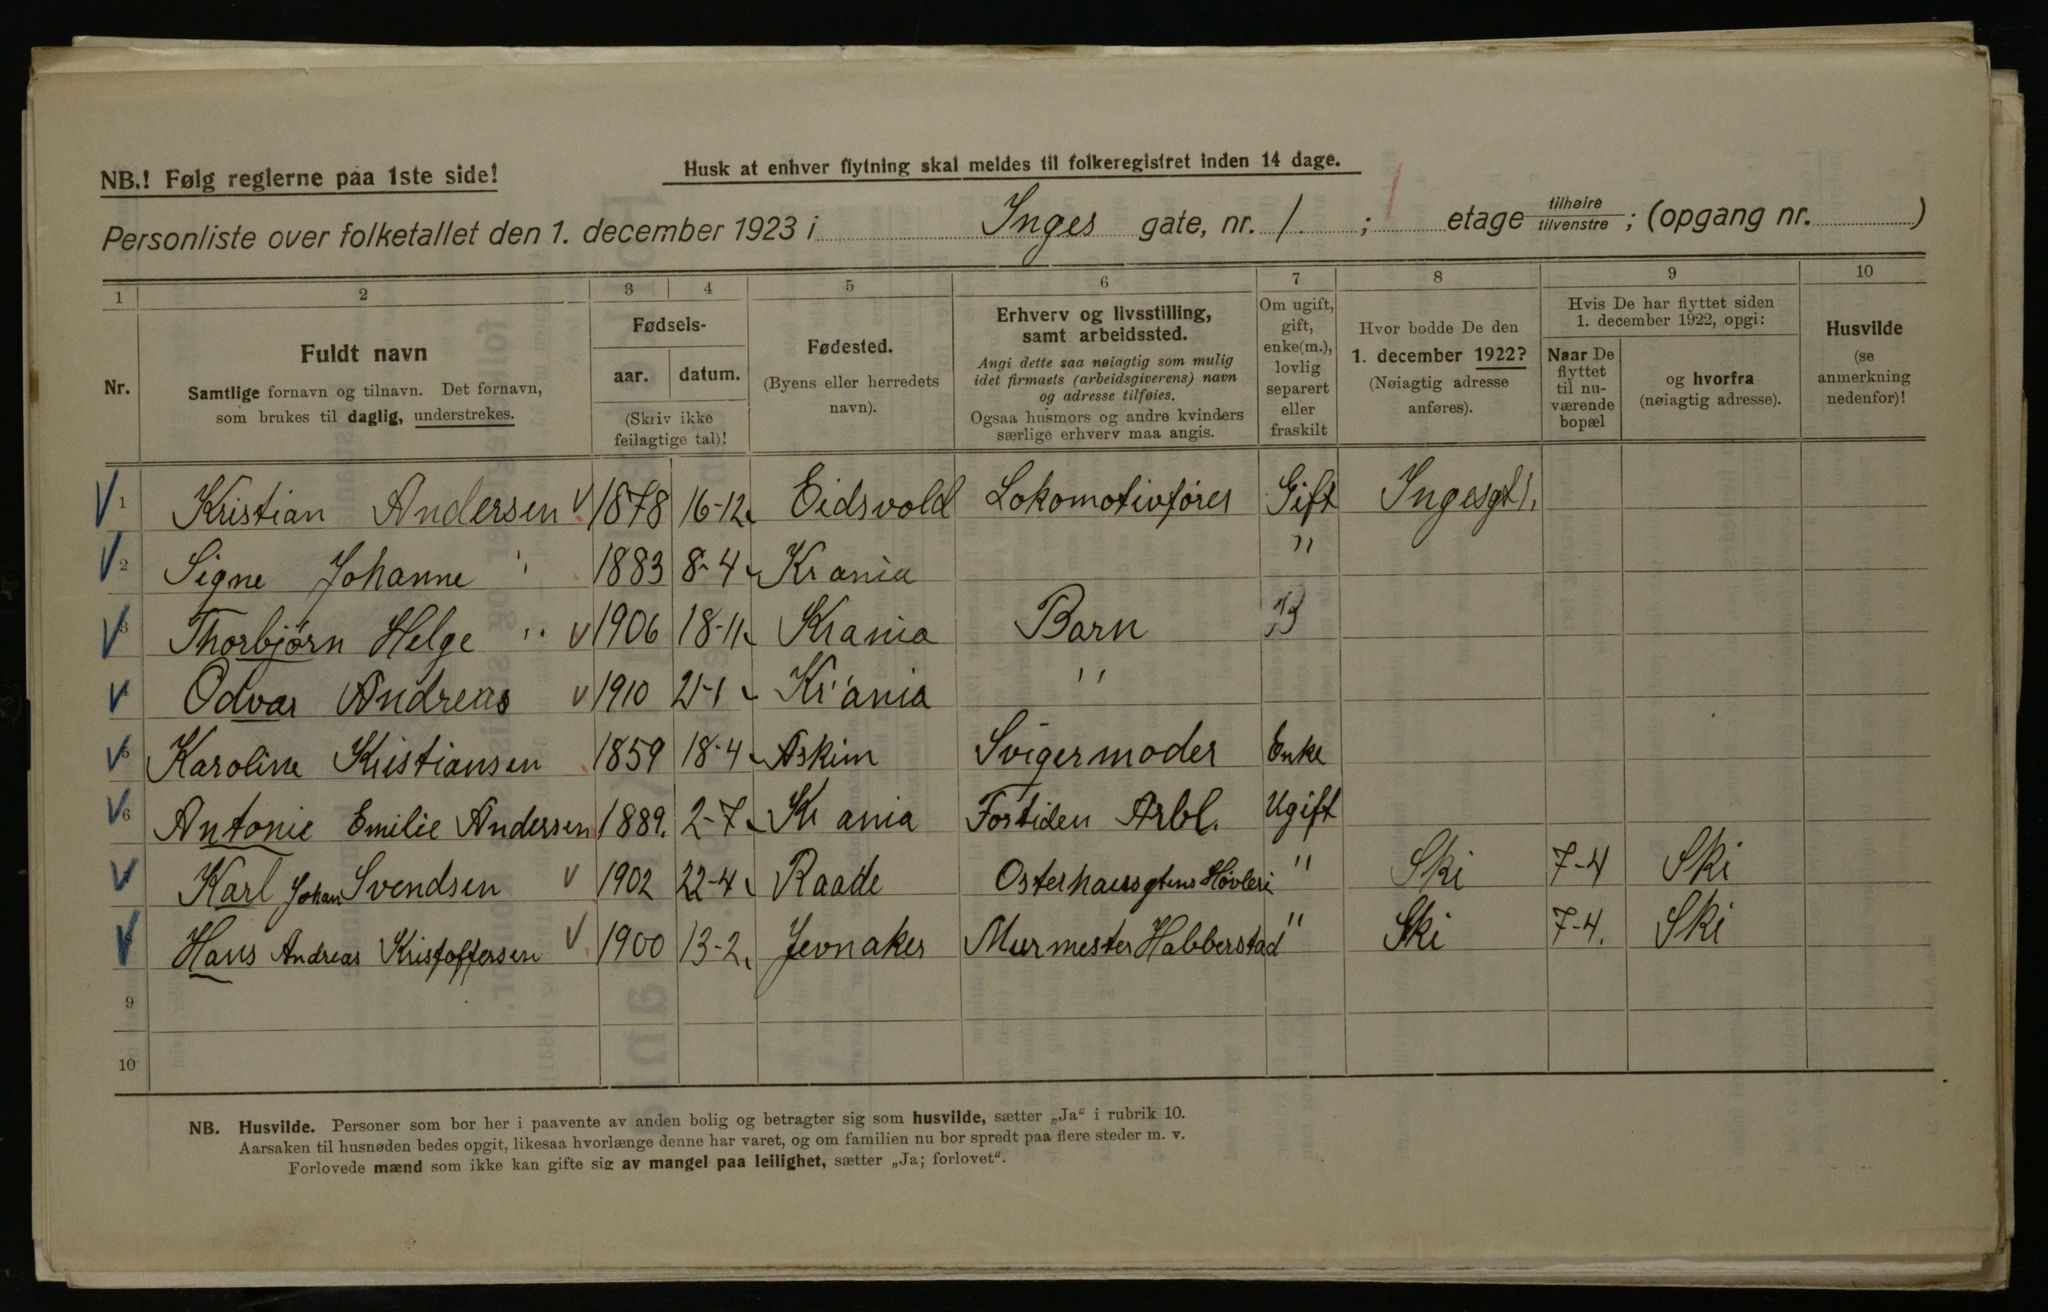 NB.! Følg reglerne paa 1ste side!
Husk at enhver flytning skal meldes til folkeregistret inden 14 dage.
Personliste over folketallet den 1. december 1923 i Inges gate, nr. 1. ; 1 etage tilhøire tilvenstre ; (opgang nr. )
1 2 3 4 5 6 7 8 9 10
Nr.
Fuldt navn
Samtlige fornavn og tilnavn. Det fornavn,
som brukes til daglig, understrekes.
Fødsels-
aar. datum.
(Skriv ikke
feilagtige tal)!
Fødested.
(Byens eller herredets
navn).
Erhverv og livsstilling,
samt arbeidssted.
Angi dette saa nøiagtig som mulig
idet firmaets (arbeidsgiverens) navn
og adresse tilføies.
Ogsaa husmors og andre kvinders
særlige erhverv maa angis.
Om ugift,
gift,
enke(m.),
lovlig
separert
eller
fraskilt
Hvor bodde De den
1. december 1922?
(Nøiagtig adresse
anføres).
Hvis De har flyttet siden
1. december 1922, opgi:
Naar De
flyttet
til nu-
værende
bopæl
og hvorfra
(nøiagtig adresse).
Husvilde
(se
anmerkning
nedenfor)!
1 Kristian Andersen 1878 16-12 Eidsvold Lokomotivfører Gift Ingesgt 1.
2 Signe Johanne " 1883 8-4 Krania "
3 Thorbjørn Helge " 1906 18-11 Krania Barn
4 Odvar Andreas 1910 21-1 Kr'ania "
5 Karoline Kristiansen 1859 18-4 Askim Svigermoder Enke
6 Antonie Emilie Andersen 1889. 2-7 Kr ania Fortiden Arbl. Ugift
Karl Johan Svendsen 1902 22-4 Raade Osterhausgtens Høvleri " Ski 7-4 Ski
Hans Andreas Kristoffersen 1900 13-2. Jevnaker Murmester Habberstad " Ski 7-4. Ski
9
10
NB. Husvilde. Personer som bor her i paavente av anden bolig og betragter sig som husvilde, sætter „Ja" i rubrik 10.
Aarsaken til husnøden bedes opgit, likesaa hvorlænge denne har varet, og om familien nu bor spredt paa flere steder m. v.
Forlovede mænd som ikke kan gifte sig av mangel paa leilighet, sætter „Ja; forlovet".